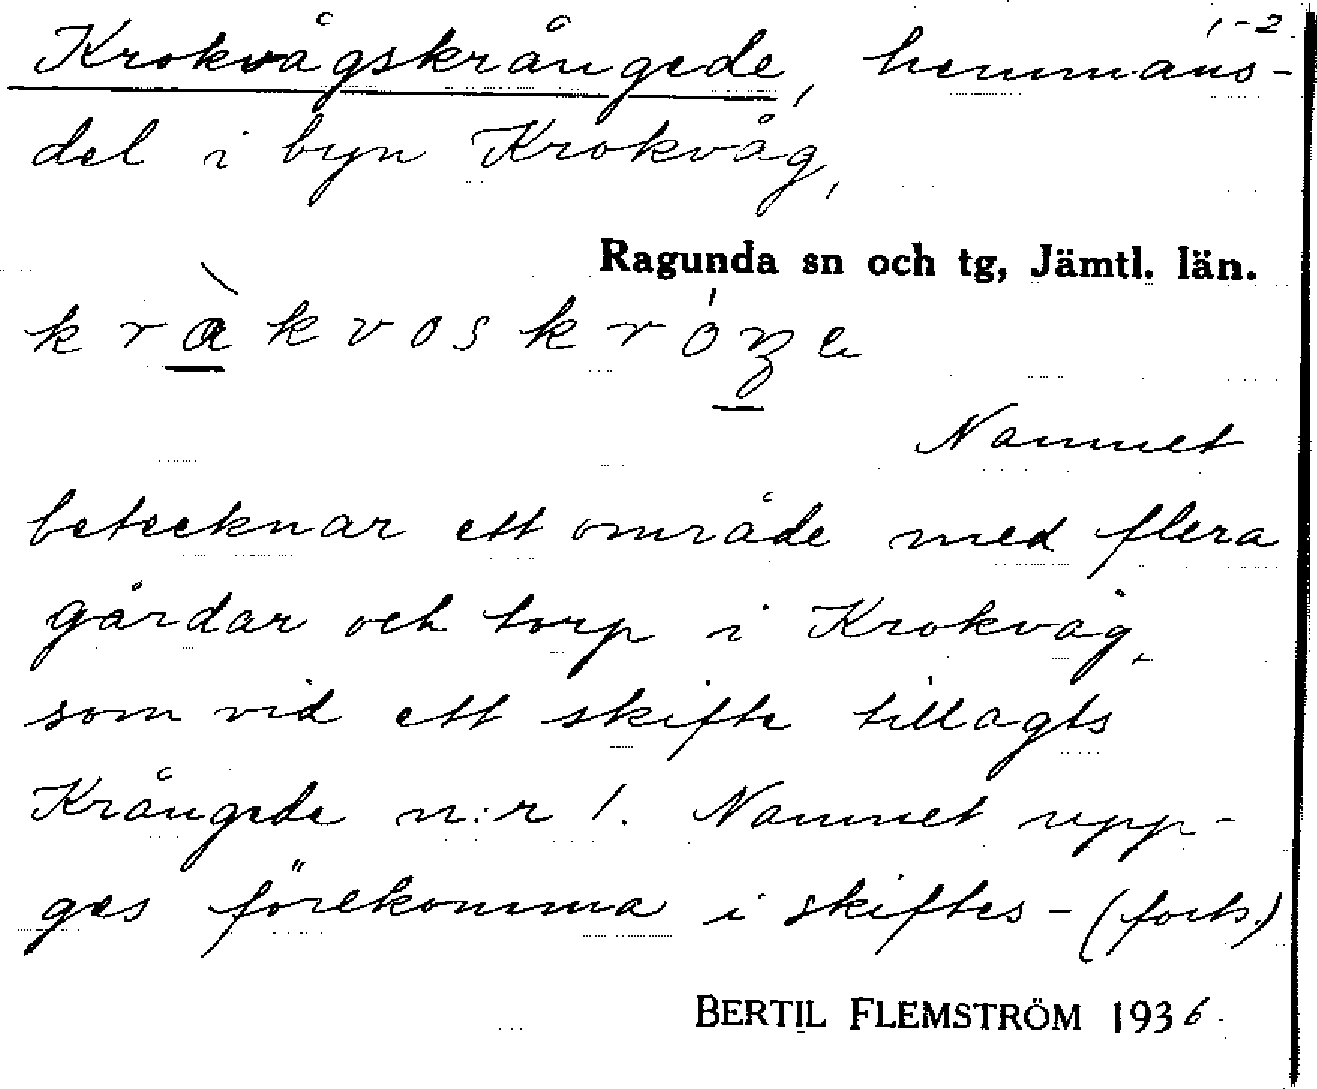 1-2.
Krokvågskrångede, hemmans-
del i byn Krokvåg,
Ragunda sn och tg, Jämtl. län.
Namnet
betecknar ett område med flera
gårdar och torp i Krokvåg,
som vid ett skifte tillagts
Krångede n:r 1. Namnet upp-
ges förekomma i skiftes- (forts.)
BERTIL FLEMSTRÖM 1936.